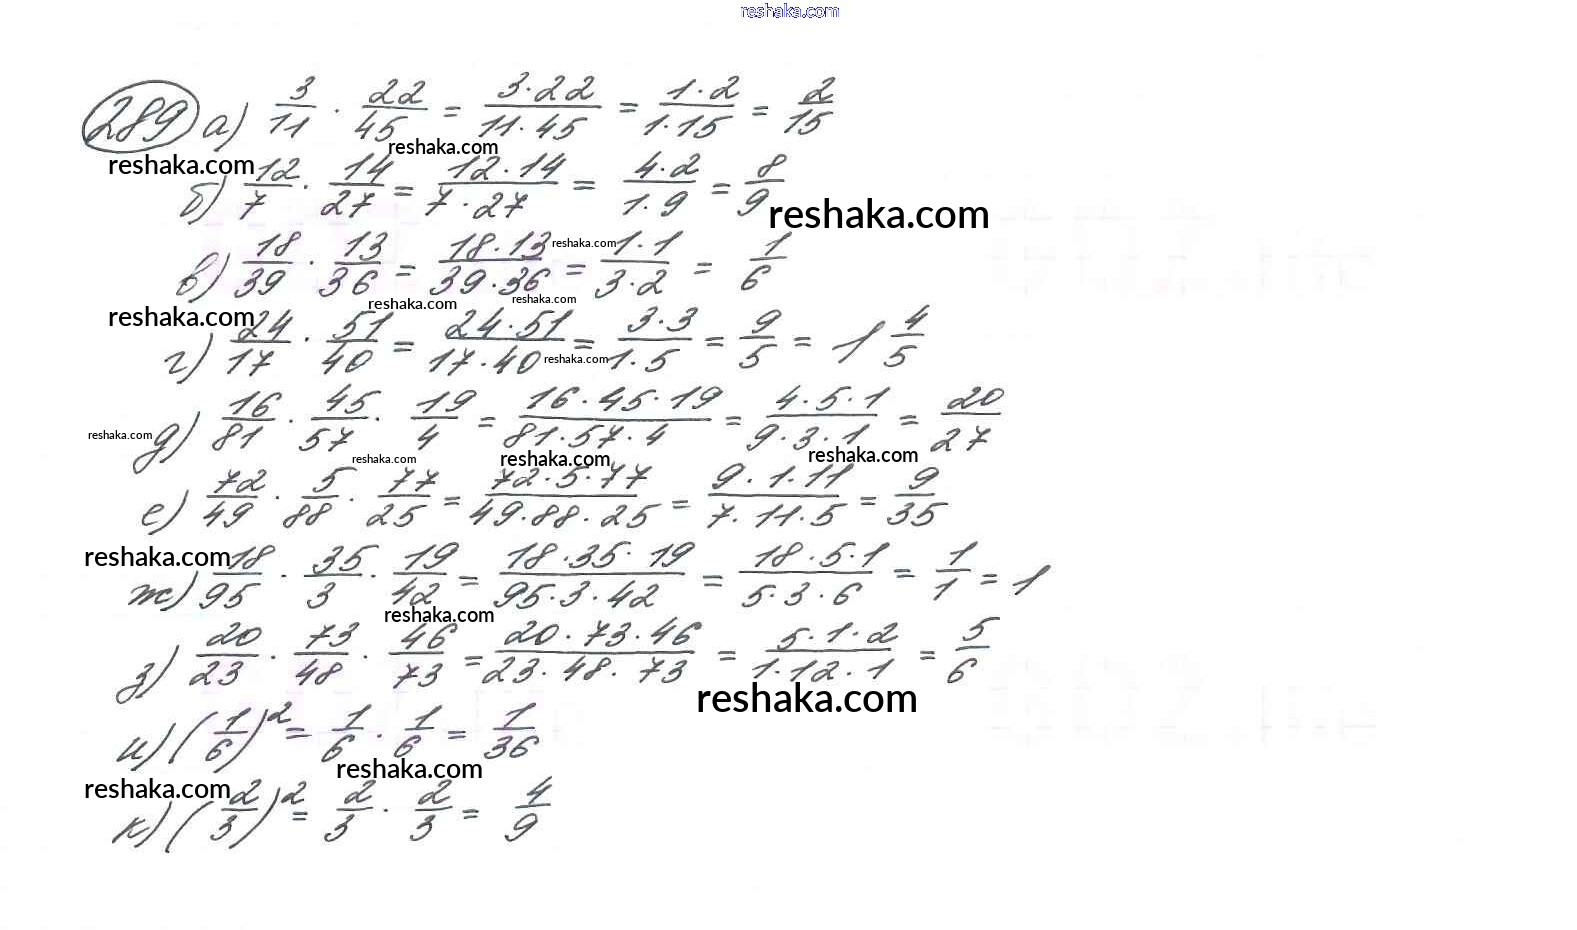 reshaka.com
289 а) 3/11 · 22/45 = 3·22/11·45 = 1·2/1·15 = 2/15
reshaka.com reshaka.com
б) 12/7 · 14/27 = 12·14/7·27 = 4·2/1·9 = 8/9
reshaka.com
в) 18/39 · 13/36 = 18·13/39·36 = 1·1/3·2 = 1/6
reshaka.com
reshaka.com reshaka.com reshaka.com
г) 24/17 · 51/40 = 24·51/17·40 = 3·3/1·5 = 9/5 = 1 4/5
reshaka.com
д) 16/81 · 45/57 · 19/4 = 16·45·19/81·57·4 = 4·5·1/9·3·1 = 20/27
reshaka.com
reshaka.com reshaka.com reshaka.com
е) 72/49 · 5/88 · 77/25 = 72·5·77/49·88·25 = 9·1·11/7·11·5 = 9/35
reshaka.com
ж) 18/95 · 35/3 · 19/42 = 18·35·19/95·3·42 = 18·5·1/5·3·6 = 1/1 = 1
reshaka.com
з) 20/23 · 73/48 · 46/73 = 20·73·46/23·48·73 = 5·1·2/1·12·1 = 5/6
reshaka.com
и) (1/6)² = 1/6 · 1/6 = 1/36
reshaka.com
reshaka.com
к) (2/3)² = 2/3 · 2/3 = 4/9